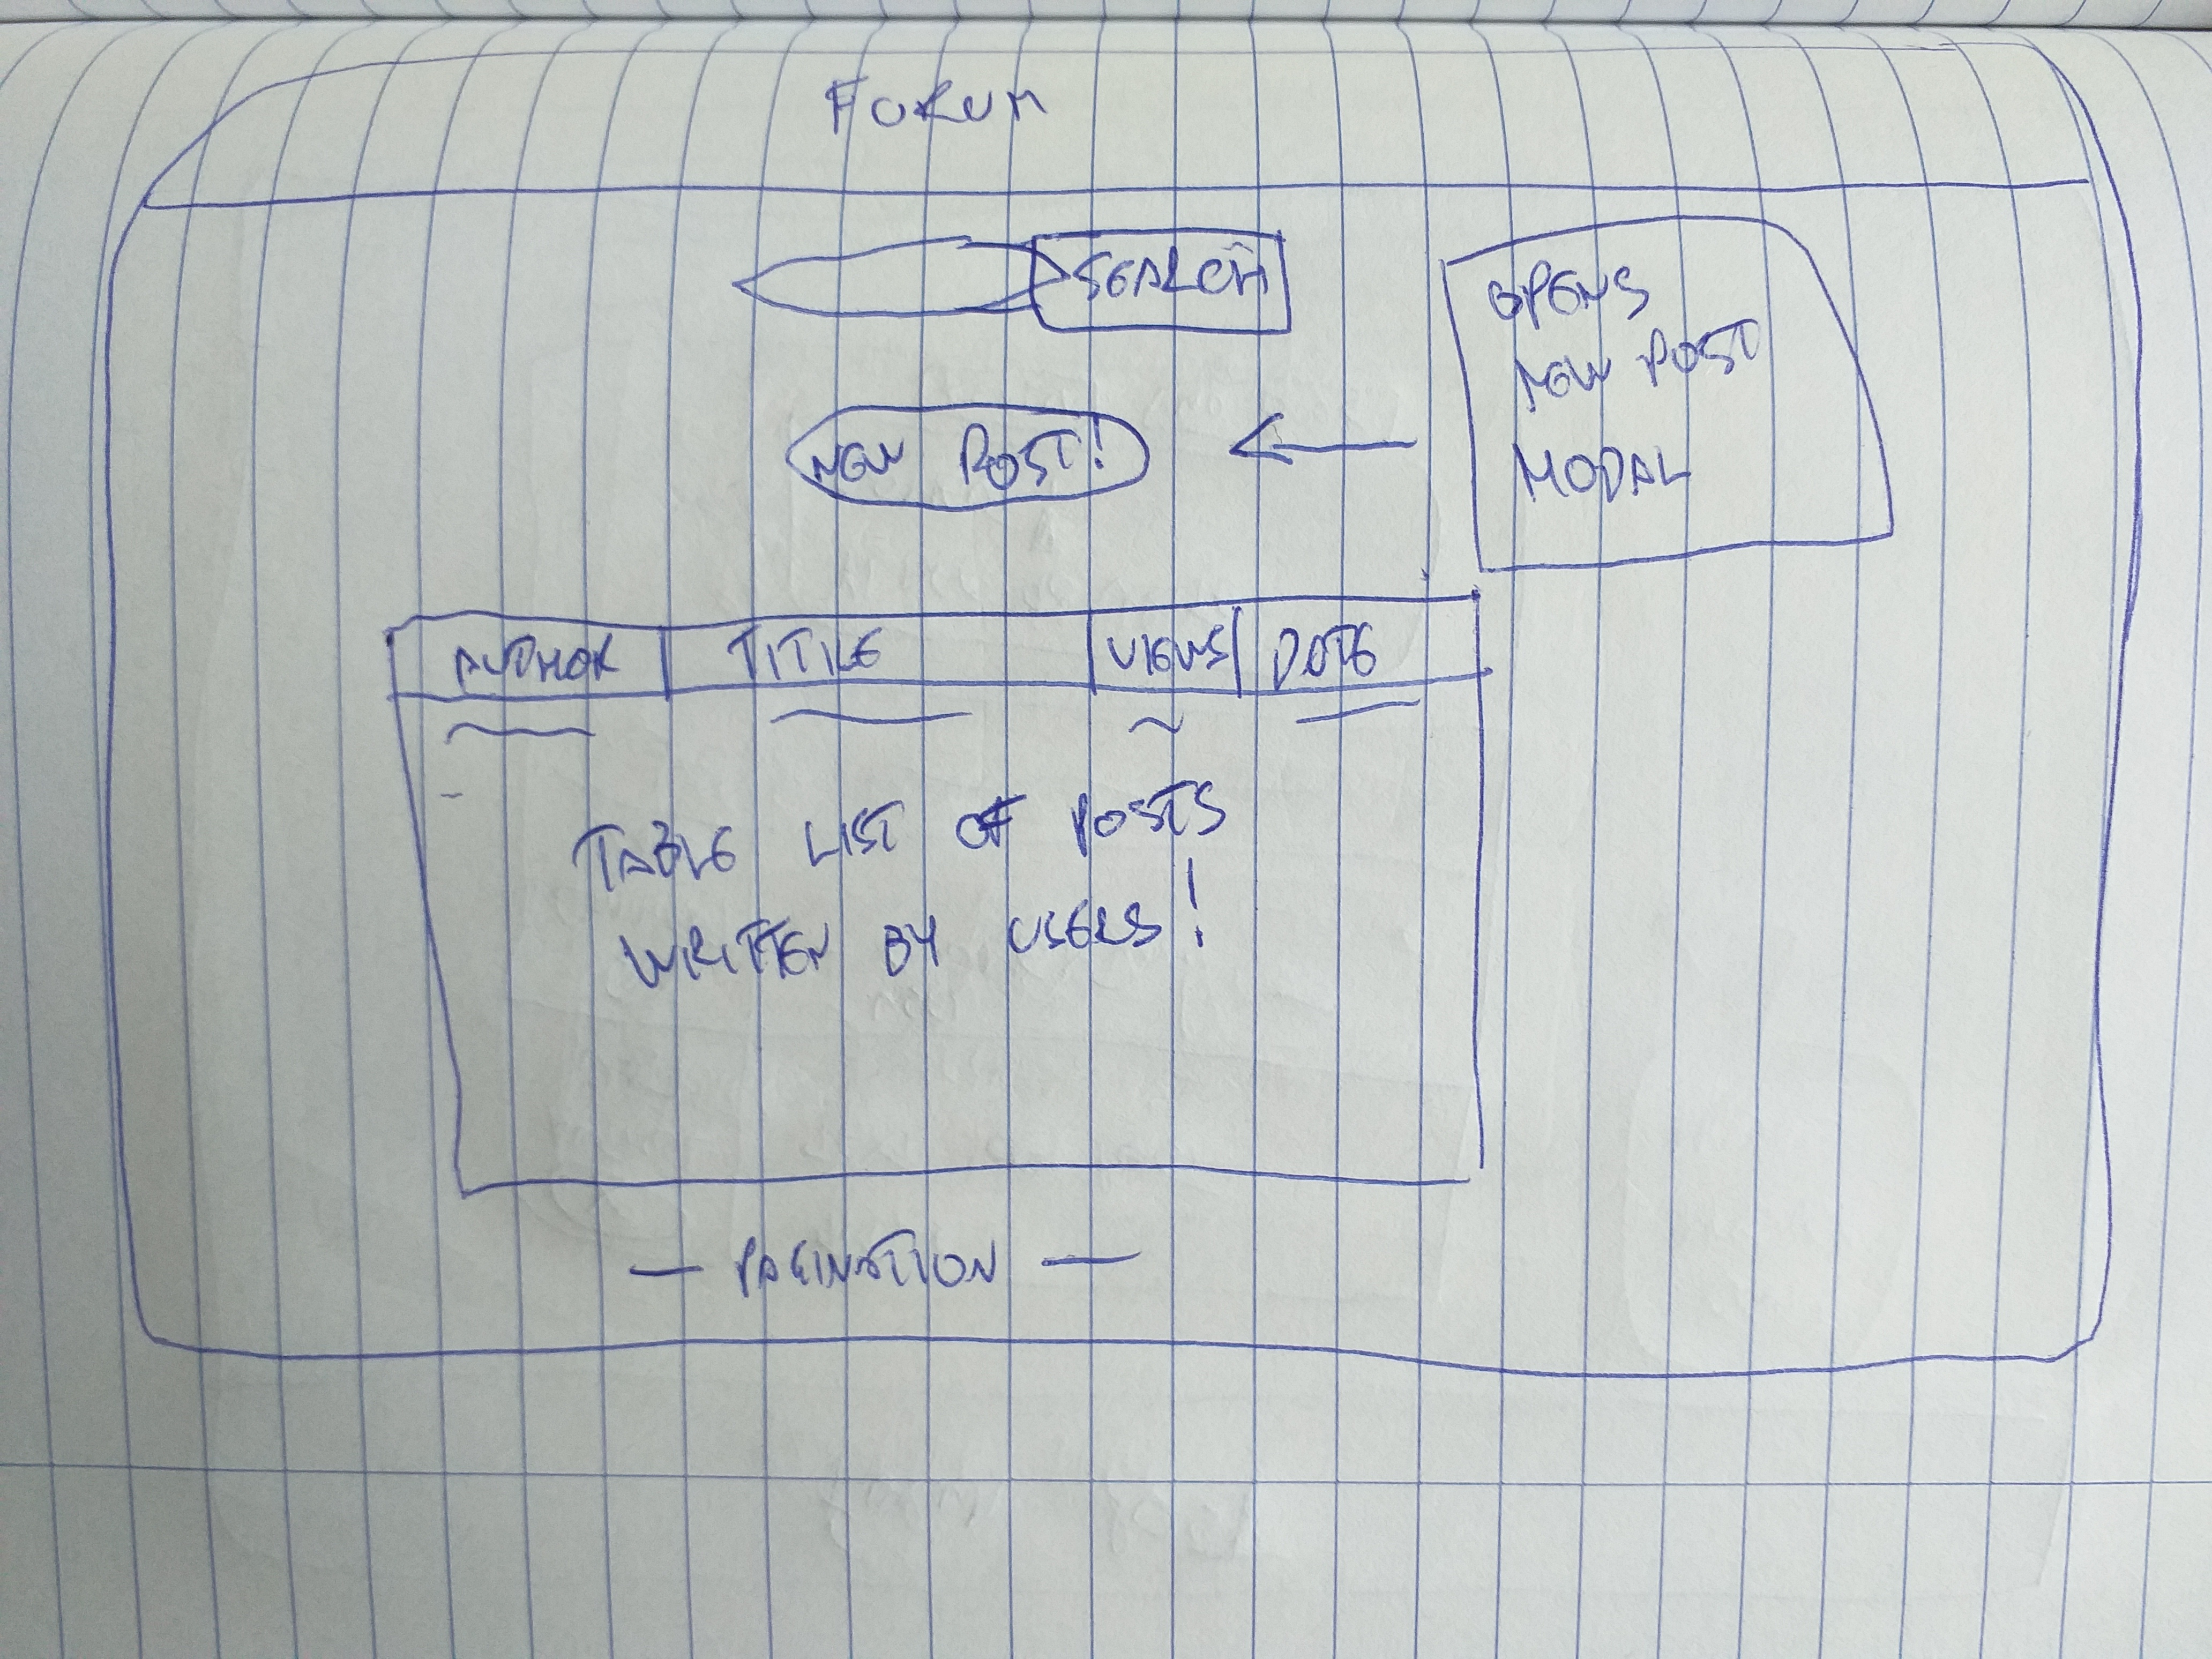 FORUM
SEARCH
OPENS
NEW POST
MODAL
NEW POST!
AUTHOR TITLE VIEWS DATE
TABLE LIST OF POSTS
WRITTEN BY USERS!
— PAGINATION —